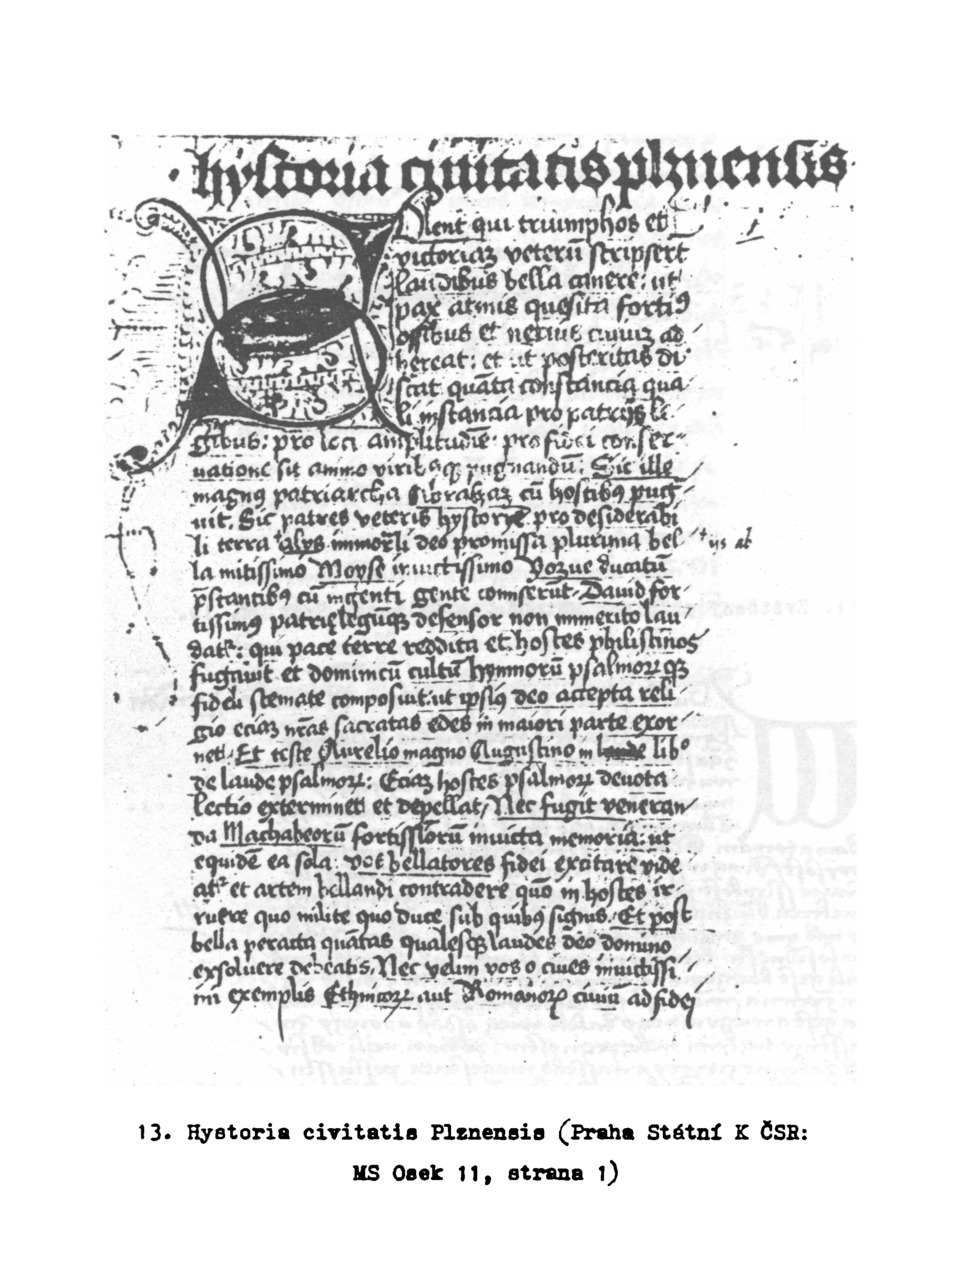 hystoria civitatis plznensis
Solent qui triumphos et
victorias veterū scripserūt
laudibus bella canere: ut
pax armis quesita fortiꝰ
ossibus et
hereat: et ut posteritas di
scat quāta constancia qua
li instancia pro patrijs le
gibus: pro loci amplitudīe pro fidei conser
uatione sit animo viribꝰqꝫ pugnandū: Sic ille
magnꝰ patriarcha Abrahaꝫ cū hostibꝰ pug
nit. Sic patres veteris hystorye pro desiderabi
li terra alys immorli deo promissa plurima bel
ijs ab
la mitissimo Moyse invictissimo Yozue ducatū
p̄stantibꝰ cū ingenti gente comiserūt. David for
tissimꝰ patrie legūqꝫ defensor non immerito lau
datr: qui pace terre reddita et hostes philistinos
fugauit et dominicū cultū hymnorū psalmorꝝqꝫ
fideli stemate composuit: ut ipsiꝰ deo accepta reli
gio eciaꝫ nr̄as sacratas edes in maiori parte exor
net. Et teste Aurelio magno Augustino in libº
de laude psalmoꝝ: Eciaꝫ hostes psalmoꝝ deuota
lectio exterminet et depellat, Nec fugit veneran
da Machabeorū fortissīorū invicta memoria: ut
equidē ea sola: vos bellatores fidei excitare vide
atr et artem bellandi contradere quō in hostes ir
ruere quo milite quo duce sub quibꝰ signis. Et post
bella peracta quātas qualesqꝫ laudes deo domino
exsoluere debeatis, Nec velim vos o ciues inuictissi
mi exemplis Ethnicoꝝ aut Romanoꝝ ciuiū ad fidei
13. Hystoria civitatis Plznensis (Praha Státní K ČSR:
MS Osek 11, strana 1)